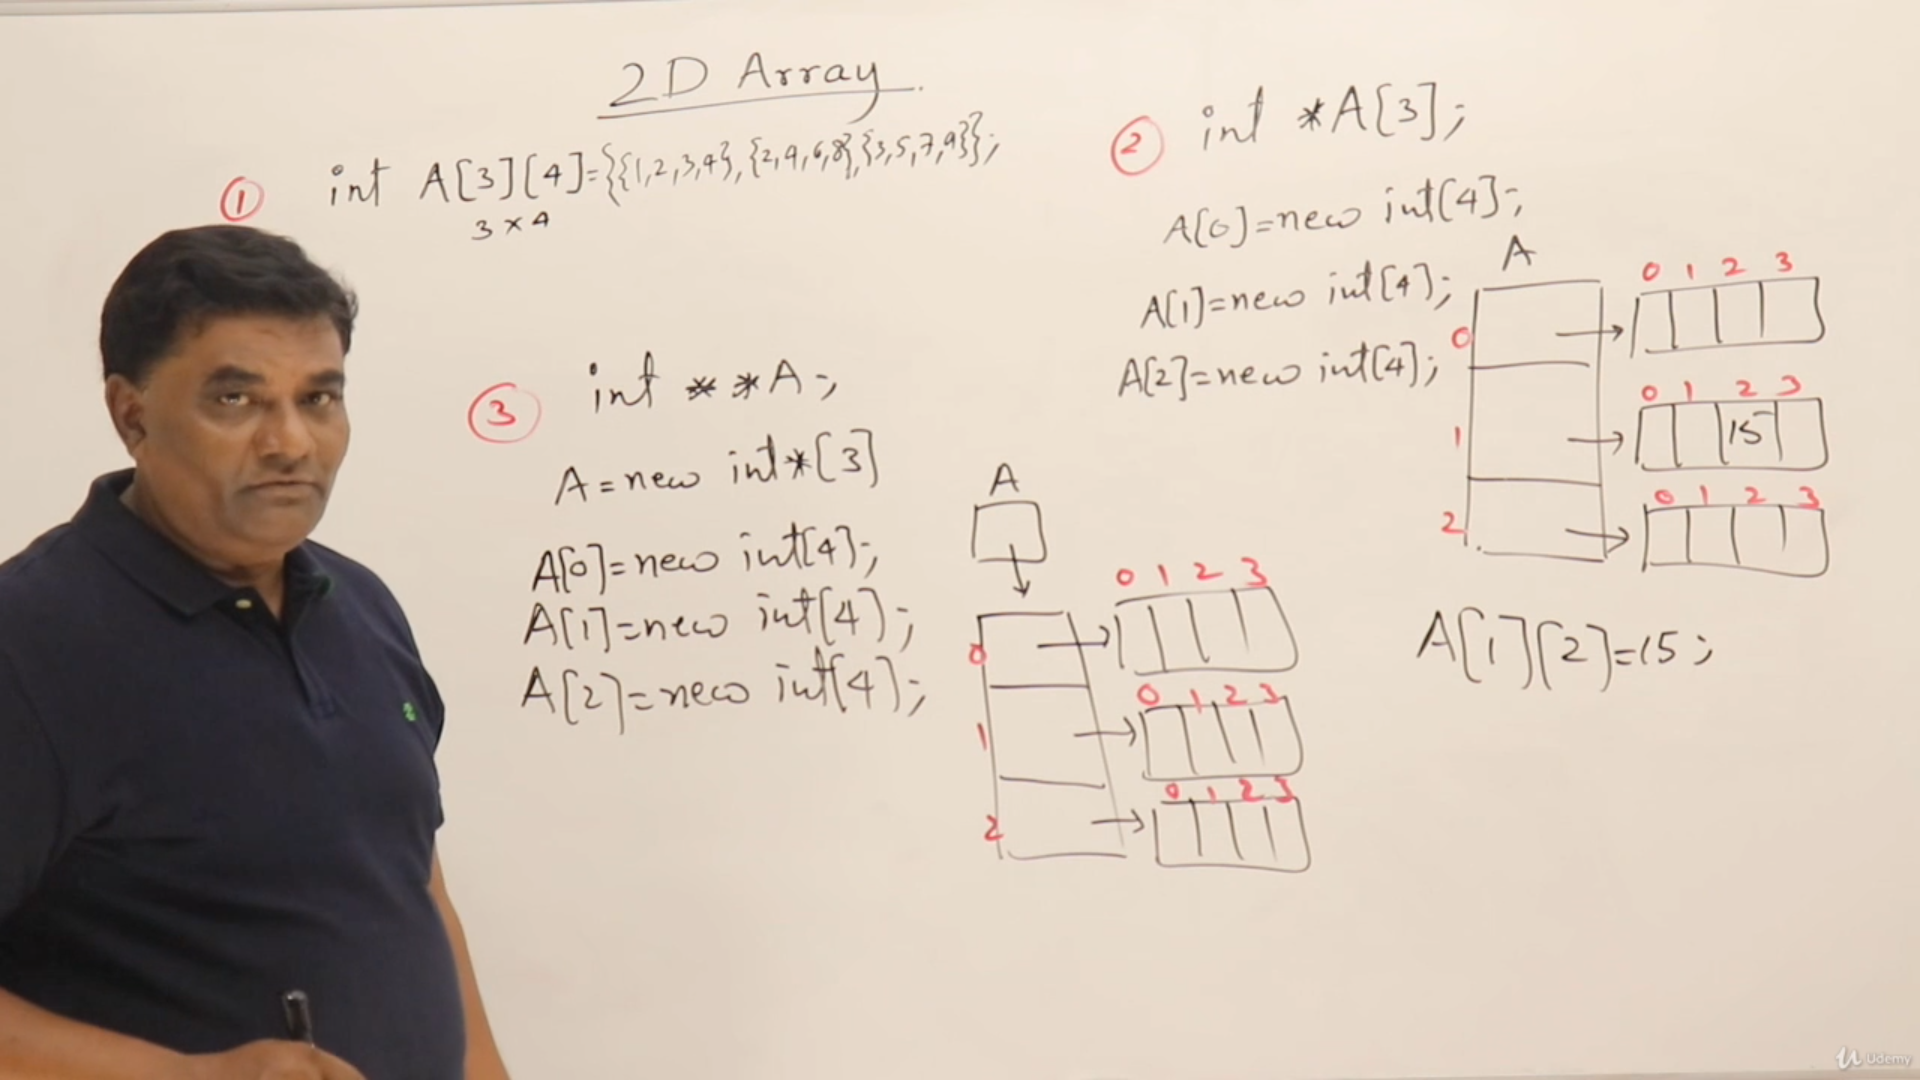 2D Array
① int A[3][4]={{1,2,3,4},{2,4,6,8},{3,5,7,9}};
3 x 4
② int *A[3];
A[0]=new int[4];
A[1]=new int[4];
A[2]=new int[4];
A
0 1 2 3
0
0 1 2 3
1
15
0 1 2 3
2
A[1][2]=15;
③ int **A;
A=new int*[3]
A[0]=new int[4];
A[1]=new int[4];
A[2]=new int[4];
A
0 1 2 3
0
0 1 2 3
1
0 1 2 3
2
Udemy